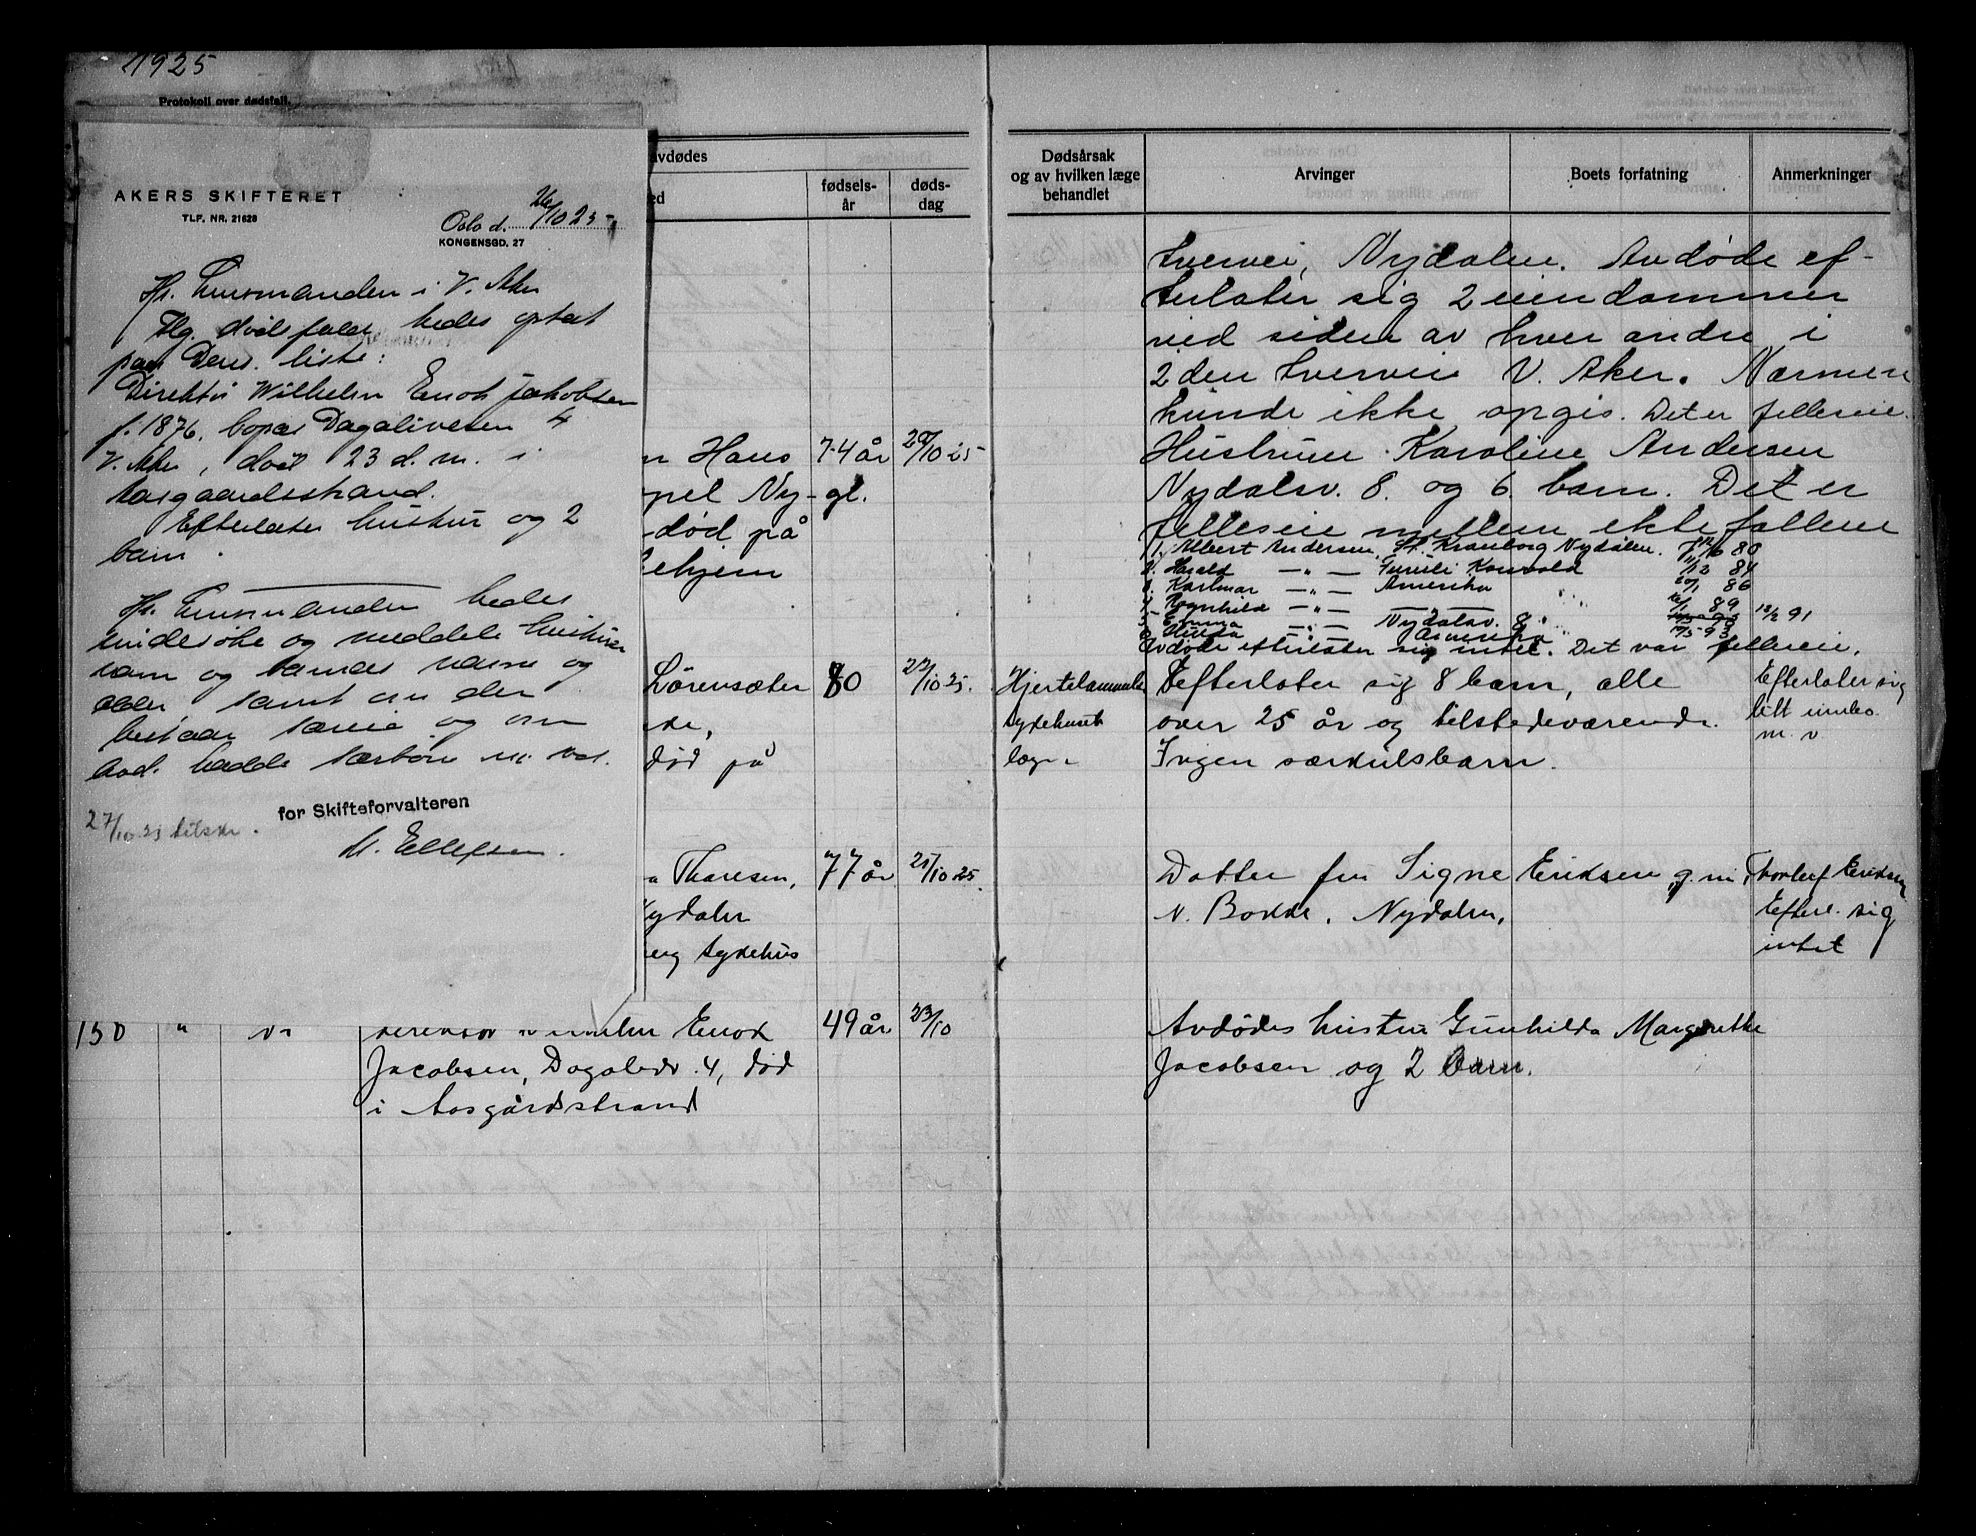 1925
Protokoll over dødsfall.
AKERS SKIFTERET
TLF. NR. 21628
Oslo d. 26/10 25
KONGENSGD. 27
Hr. Lensmanden i V. Aker
Flg. dødsfald bedes optat
paa Deres liste:
Direktør Wilhelm Enok Jakobsen
f. 1876, bopæl Dagaliveien 4
V. Aker, død 23 d. m. i
Aasgaardsstrand.
Efterlater hustru og 2
barn.
Hr. Lensmanden bedes
undersøke og meddele hustruens
navn og barnas navne og
alder, samt om der
bestaar særeie og om
avd. hadde særbørn m. v.
27/10 25 tilskr.
for Skifteforvalteren
M. Ellefsen.
avdødes
ed
fødsels-
år
døds-
dag
Dødsårsak
og av hvilken læge
behandlet
Arvinger
Boets forfatning
Anmerkninger
tvervei, Nydalen. Avdøde ef-
terlater sig 2 eiendommer
ved siden av hver andre i
2den tverveie V. Aker. Nærmere
kunde ikke opgis. Det er felleseie.
n Hans 74 år 20/10 25
Hustruen Karoline Andersen
pel Ny- gl.
Nydalsv. 8. og 6 barn. Det er
død på
felleseie mellem ikke fallene
ehjem
1. Albert Andersen, St. Kranborg Nydalen. 80
2. Harald — " — 84
3. Karlmar — " — Amerika 20/1 86
4. Ragnhild — " — 89
5. Emma — " — Nydalsv. 8 12/2 91
6. Hulda " Amerika 19/5 93
Avdøde efterlater sig intet. Det var felleseie.
Lörensæter 80 22/10 25.
Hjertelammelse
Efterlater sig 8 barn, alle
Efterlater sig
de,
sykehuset
over 25 år og tilstedeværende.
litt innbo
m. v
død på
læge
Ingen særkulsbarn.
a Thoresen, 77 år 25/10 25.
Datter fru Signe Eriksen g. m. Thorleif Eriksen
ydalen
v. Bakke, Nydalen,
Efterl. sig
eng sykehus
intet
150 " v. Direktør Wilhelm Enok 49 år 23/10
Avdødes hustru Gunhilda Margrethe
Jacobsen, Dagaliv. 4, død
Jacobsen og 2 barn.
i Aasgårdstrand